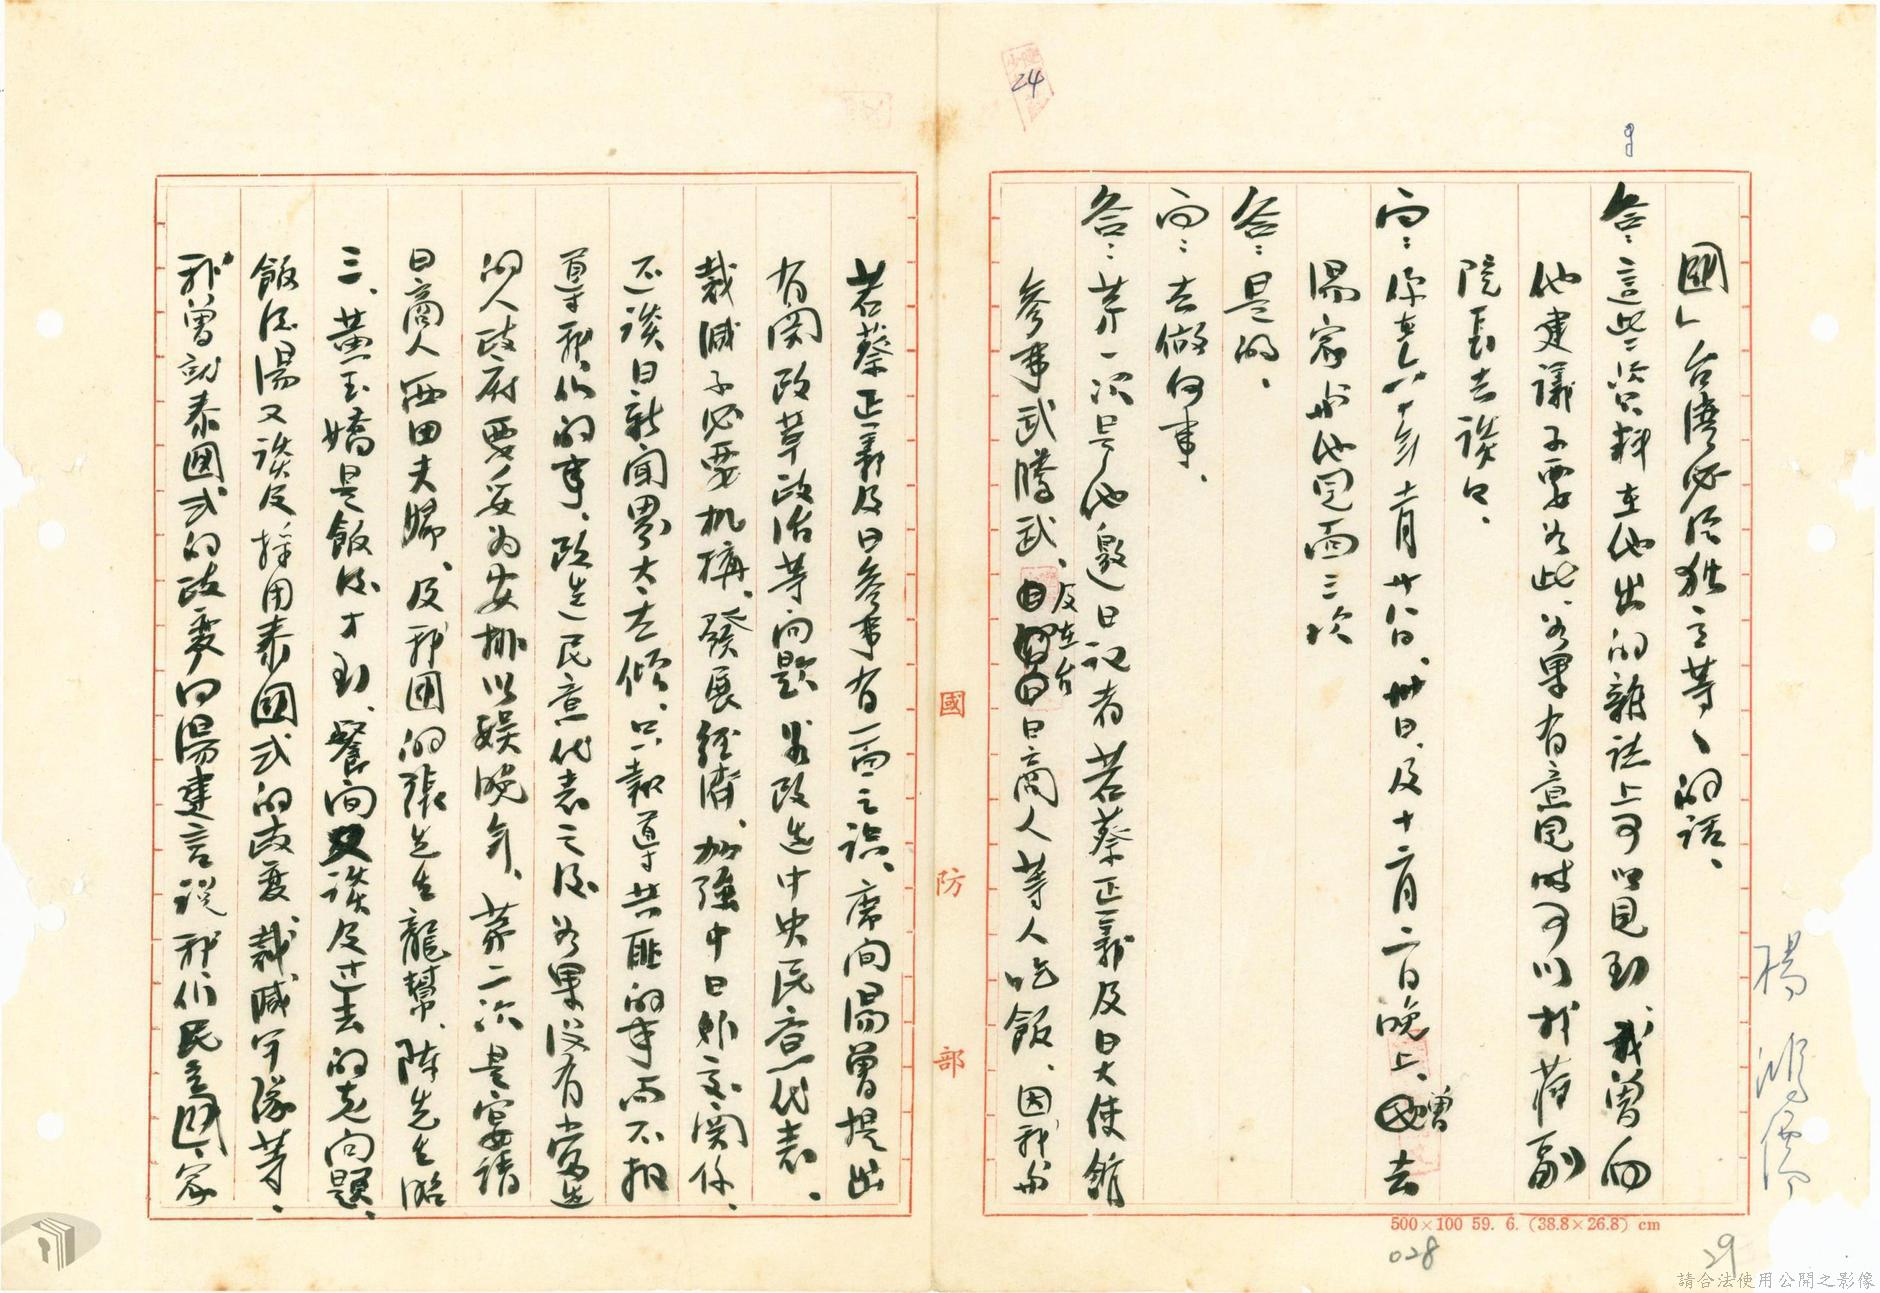 24
9
國」台灣必須独立等、的話、
答：這些資料在他出的雜誌上可以見到、我曾向
他建議不要如此、如果有意見時可以找蔣副
院長去談口、
問：你在六十年十一月廿八日、卅日、及十二月二日晚上、曾去
湯家與他見面三次
答：是的、
問：去做何事、
答：第一次是他邀日記者若蔡正義及日大使館
參事武藤武、及在台日商人等人吃飯、因我與
若蔡正義及日參事有一面之識、席間湯曾提出
有関政革政治等问題如改造中央民意代表、
裁減不必要机構、發展經濟、加強中日外交関係、
还談日新聞界太左傾、只報導共匪的事而不報
導我们的事、改造民意代表之後如果沒有當選
的人政府要妥为安排以娛晚年、第二次是宴請
日商人西田夫婦、及我国的張先生龍幫、陳先生昭
三、黃玉嬌是飯後才到、餐间談及过去的老问題、
飯後湯又談及採用泰國式的政变、裁減軍隊等、
我曾就泰國式的政变向湯建言説我们民主國家
國防部
楊鴻儒
500×100 59. 6. (38.8×26.8) cm
028
29
請合法使用公開之影像